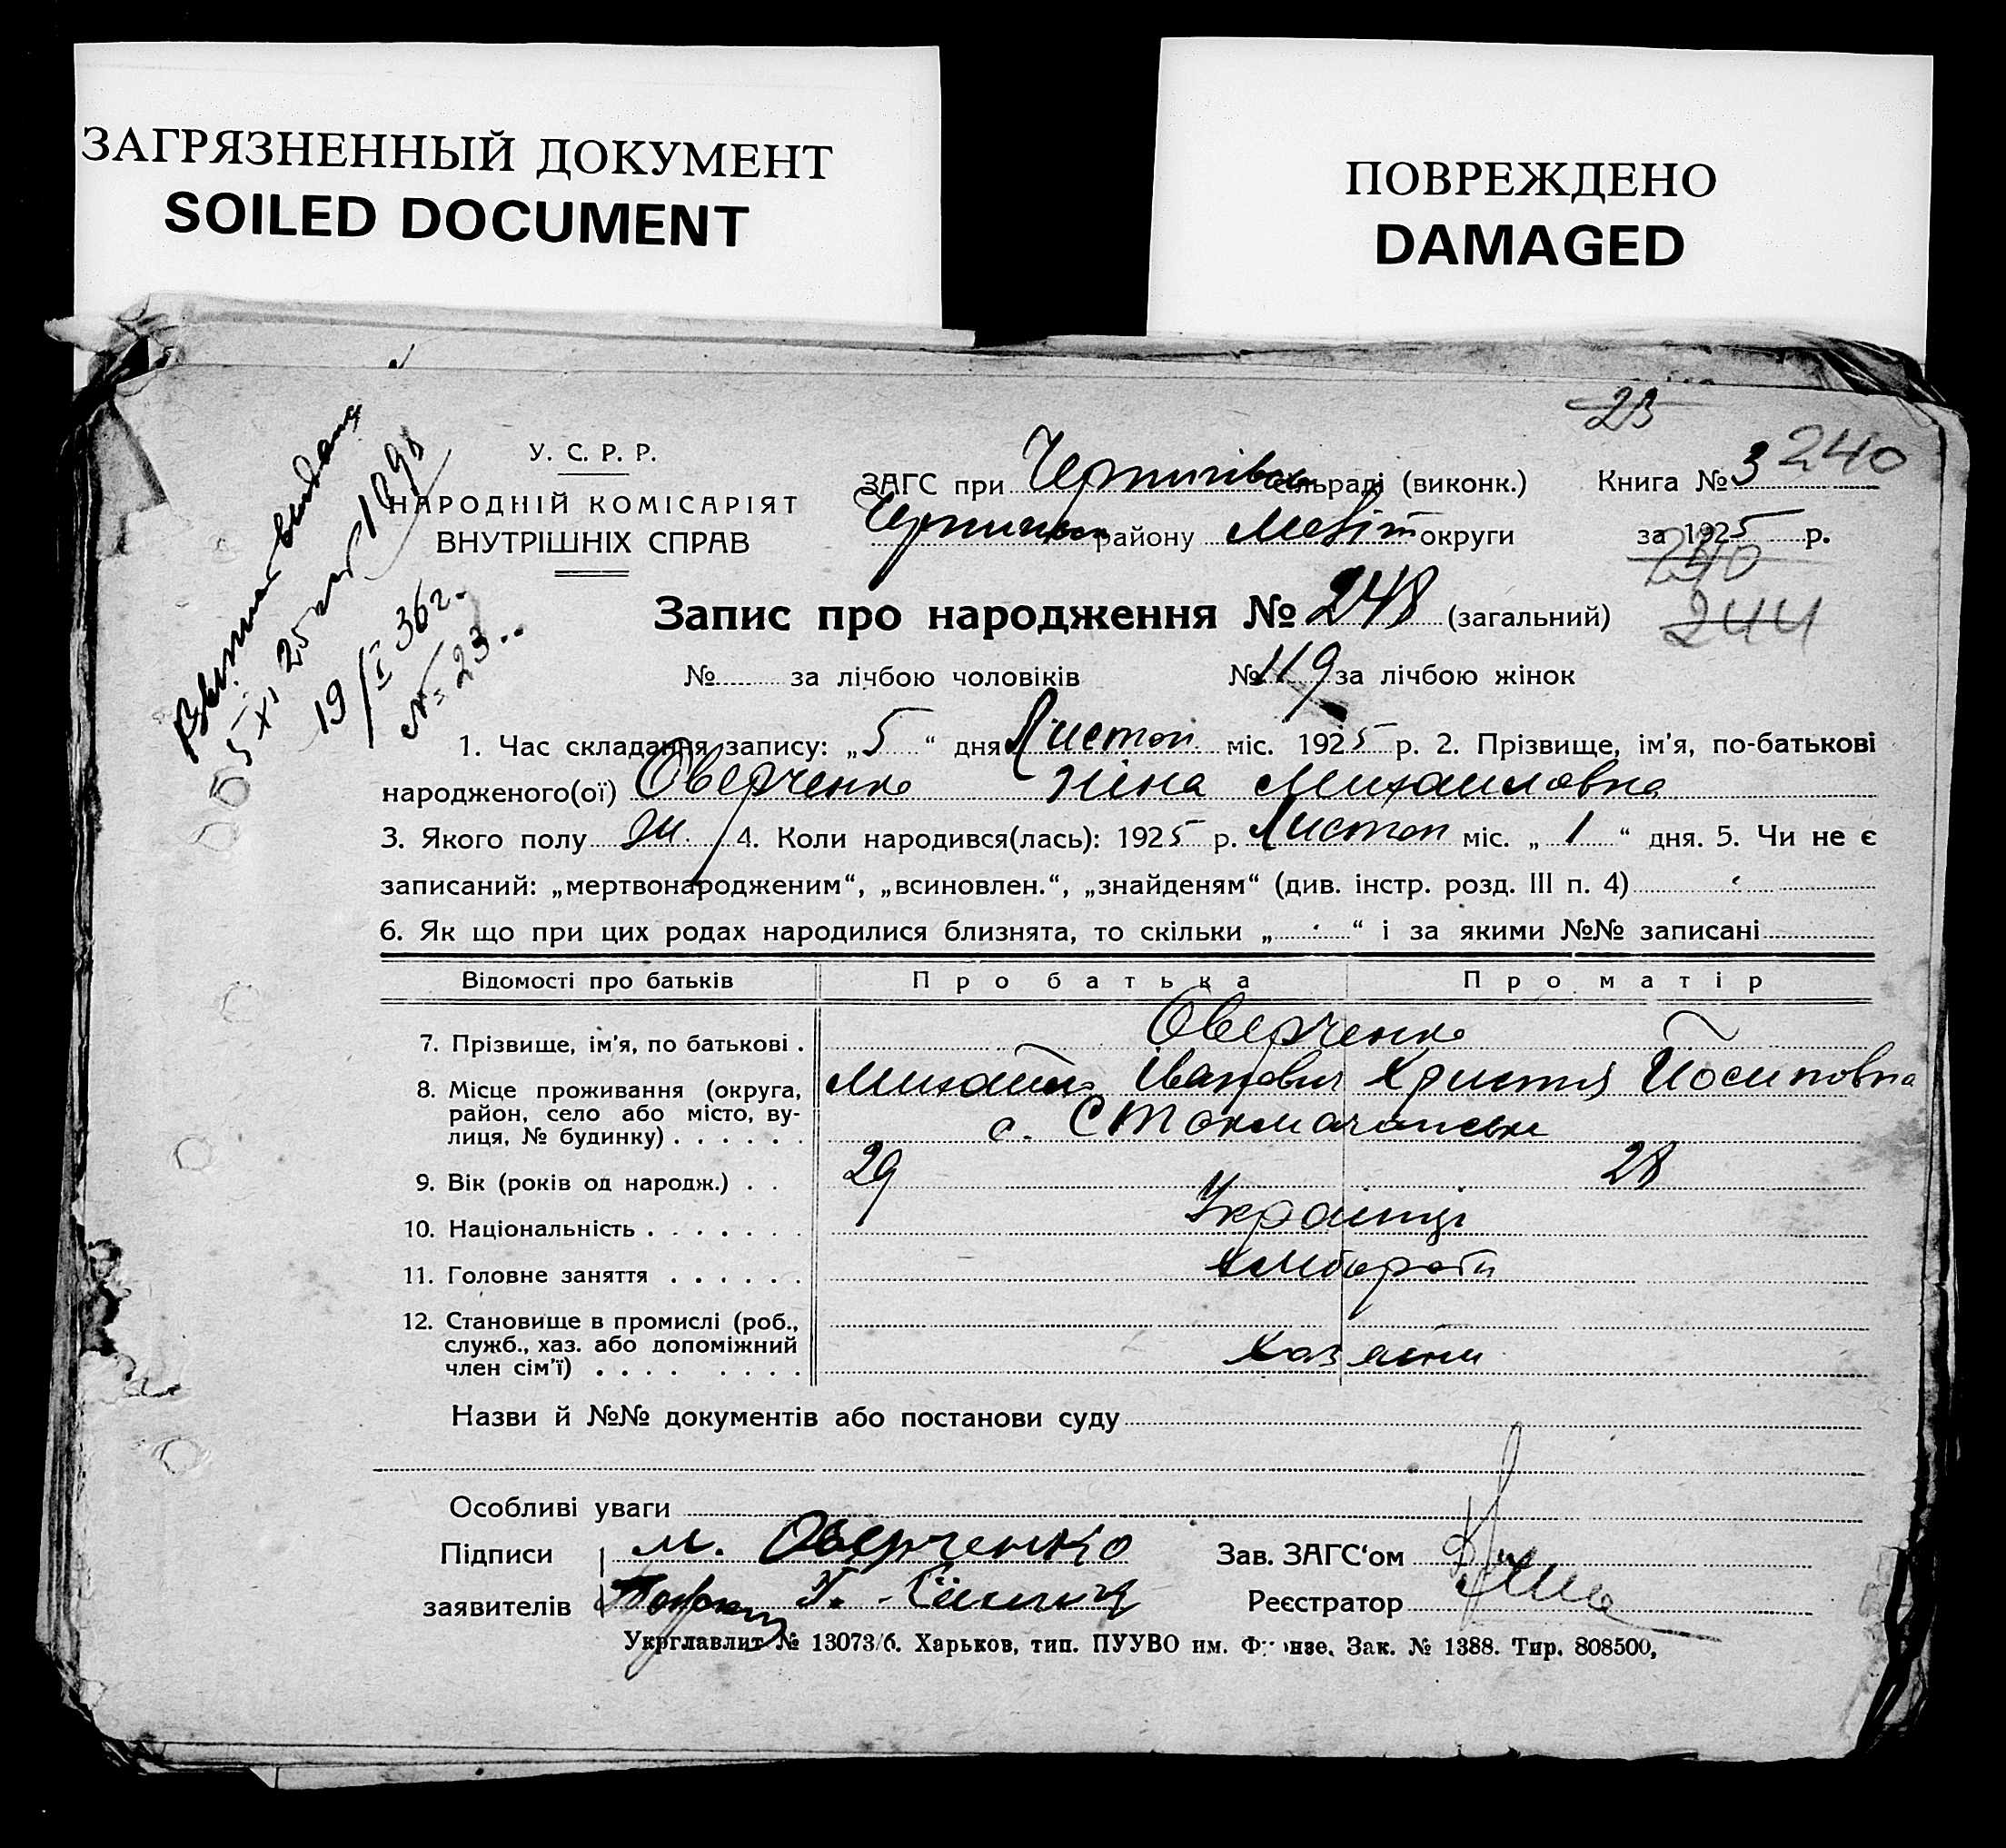 ЗАГРЯЗНЕННЫЙ ДОКУМЕНТ
SOILED DOCUMENT
ПОВРЕЖДЕНО
DAMAGED
23
240
У. С. Р. Р.
НАРОДНІЙ КОМІСАРІЯТ
ВНУТРІШНІХ СПРАВ
Виписка видана
5 XI 25
19/I 36 г.
№ 23
ЗАГС при сільраді (виконк.) Книга № 3
району Меліт округи за 1925 р.
240
Запис про народження № 248 (загальний)
244
№ за лічбою чоловіків № 119 за лічбою жінок
1. Час складання запису: „5“ дня Листоп. міс. 1925 р. 2. Прізвище, ім'я, по-батькові
народженого(ої) Оверченко Ніна Михаиловна
3. Якого полу ж. 4. Коли народився(лась): 1925 р. Листоп міс. „1“ дня. 5. Чи не є
записаний: „мертвонародженим“, „всиновлен.“, „знайденям“ (див. інстр. розд. III п. 4)
6. Як що при цих родах народилися близнята, то скільки „ “ і за якими №№ записані
Відомості про батьків Про батька Про матір
7. Прізвище, ім'я, по батькові . Оверченко
Іванович Христия Йосиповна
8. Місце проживання (округа,
район, село або місто, ву-
лиця, № будинку) . . . . . . с.
9. Вік (років од народж.) . . 29 28
10. Національність . . . . . . . Українці
11. Головне заняття . . . . . . хлібороби
12. Становище в промислі (роб.,
служб., хаз. або допоміжний
член сім'ї) . . . . . . . . Хазяїни
Назви й №№ документів або постанови суду
Особливі уваги
Підписи М. Оверченко Зав. ЗАГС'ом
заявителів Реєстратор
Укрглавлит № 13073/б. Харьков, тип. ПУУВО им. Фрунзе. Зак. № 1388. Тир. 808500,